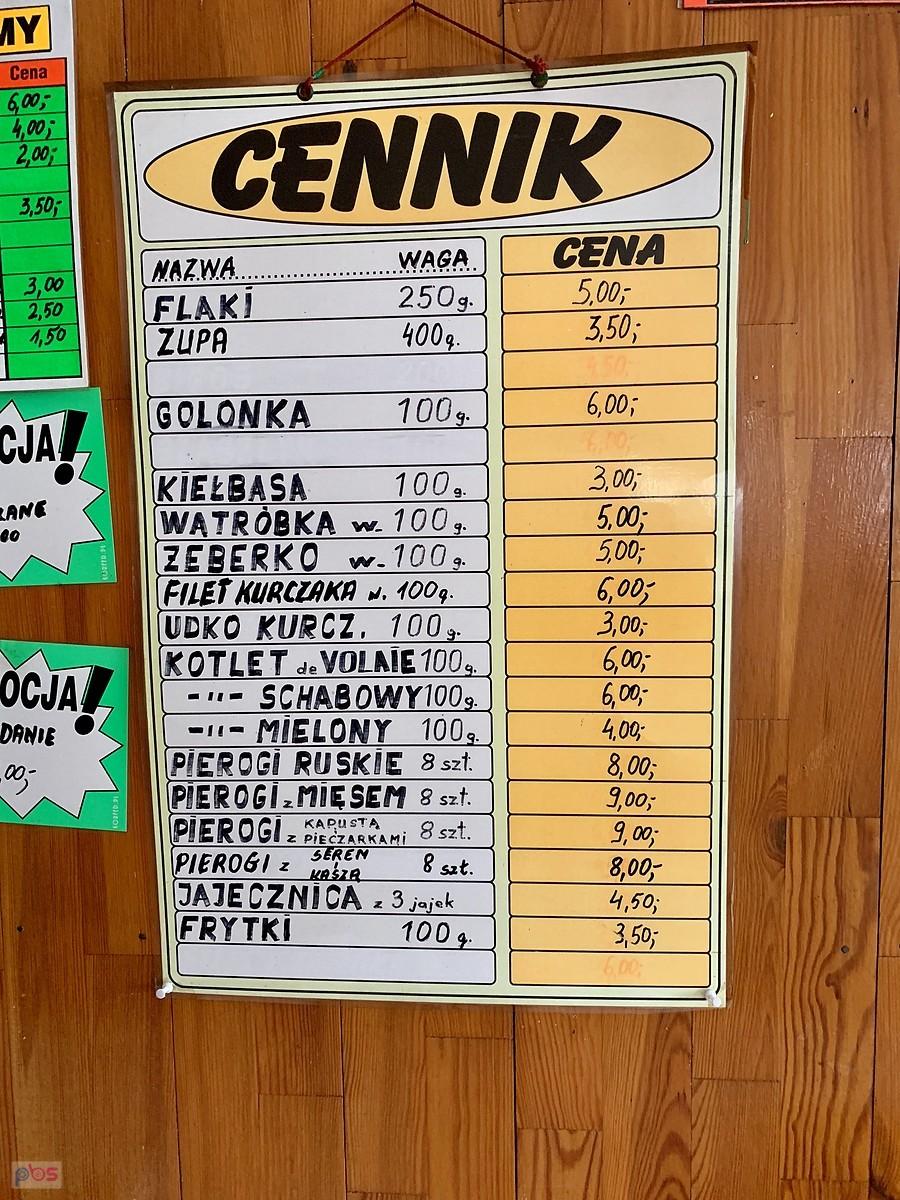 MY
Cena
6,00,-
4,00,-
2,00,-
3,50,-
3,00
2,50
1,50
CJA!
00
OCJA!
DANIE
,00,-
CENNIK
NAZWA WAGA CENA
FLAKI 250g. 5,00,-
ZUPA 400g. 3,50,-
4,50,-
GOLONKA 100g. 6,00,-
6,00,-
KIEŁBASA 100g. 3,00,-
WĄTRÓBKA w. 100g. 5,00,-
ŻEBERKO w. 100g. 5,00,-
FILET KURCZAKA w. 100g. 6,00,-
UDKO KURCZ. 100g. 3,00,-
KOTLET de VOLAIE 100g. 6,00,-
-"- SCHABOWY 100g. 6,00,-
-"- MIELONY 100g. 4,00,-
PIEROGI RUSKIE 8 szt. 8,00,-
PIEROGI z MIĘSEM 8 szt. 9,00,-
PIEROGI z KAPUSTĄ i PIECZARKAMI 8 szt. 9,00,-
PIEROGI z SEREM i KASZĄ 8 szt. 8,00,-
JAJECZNICA z 3 jajek 4,50,-
FRYTKI 100g. 3,50,-
6,00,-
pbs